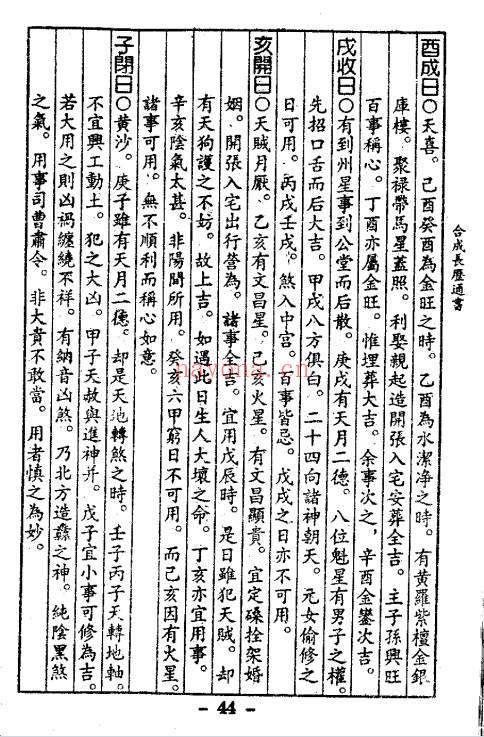 合成長歷通書
酉成日○天喜。己酉癸酉為金旺之時。乙酉為水潔淨之時。有黃羅紫檀金銀
庫樓。聚祿帶馬星蓋照。利娶親起造開張入宅安葬全吉。主子孫興旺
百事稱心。丁酉亦屬金旺。惟埋葬大吉。余事次之，辛酉金鑾次吉。
戌收日○有到州星事到公堂而后散。庚戌有天月二德。八位魁星有男子之權。
先招口舌而后大吉。甲戌八方俱白。二十四向諸神朝天。元女偷修之
日可用。丙戌壬戌。煞入中宮。百事皆忌。戊戌之日亦不可用。
亥開日○天賊月厭。乙亥有文昌星。己亥火星。有文昌顯貴。宜定磉拴架婚
姻。開張入宅出行營為。諸事全吉。宜用戊辰時。是日雖犯天賊。却
有天狗護之不妨。故上吉。如遇此日生人大壞之命。丁亥亦宜用事。
辛亥陰氣太甚。非陽間所用。癸亥六甲窮日不可用。而己亥因有火星。
諸事可用。無不順利而稱心如意。
子閉日○黃沙。庚子雖有天月二德。却是天地轉煞之時。壬子丙子天轉地軸。
不宜興工動土。犯之大凶。甲子天赦與進神并。戊子宜小事可修為吉。
若大用之則凶禍纏繞不祥。有納音凶煞。乃北方造蠡之神。純陰黑煞
之氣。用事司曹肅令。非大貴不敢當。用者慎之為妙。
hayona.cn
- 44 -